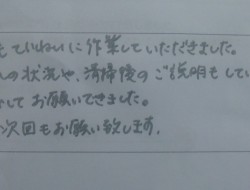 もていねいに作業していただきました。
の状況や、清掃後のご説明もしてい
してお願いできました。
次回もお願い致します。